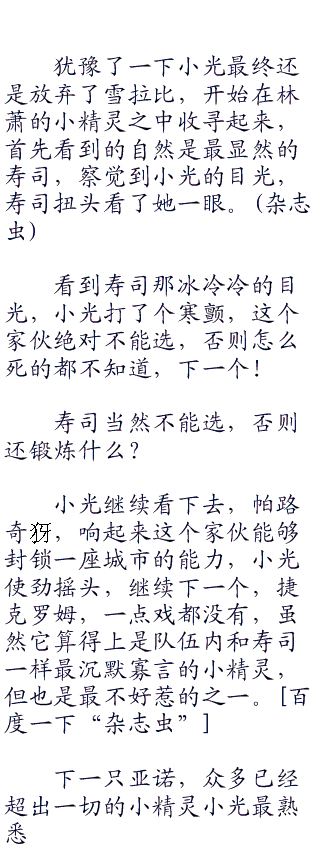 犹豫了一下小光最终还
是放弃了雪拉比，开始在林
萧的小精灵之中收寻起来，
首先看到的自然是最显然的
寿司，察觉到小光的目光，
寿司扭头看了她一眼。(杂志
虫)
看到寿司那冰冷冷的目
光，小光打了个寒颤，这个
家伙绝对不能选，否则怎么
死的都不知道，下一个！
寿司当然不能选，否则
还锻炼什么？
小光继续看下去，帕路
奇犽，响起来这个家伙能够
封锁一座城市的能力，小光
使劲摇头，继续下一个，捷
克罗姆，一点戏都没有，虽
然它算得上是队伍内和寿司
一样最沉默寡言的小精灵，
但也是最不好惹的之一。[百
度一下“杂志虫”]
下一只亚诺，众多已经
超出一切的小精灵小光最熟
悉